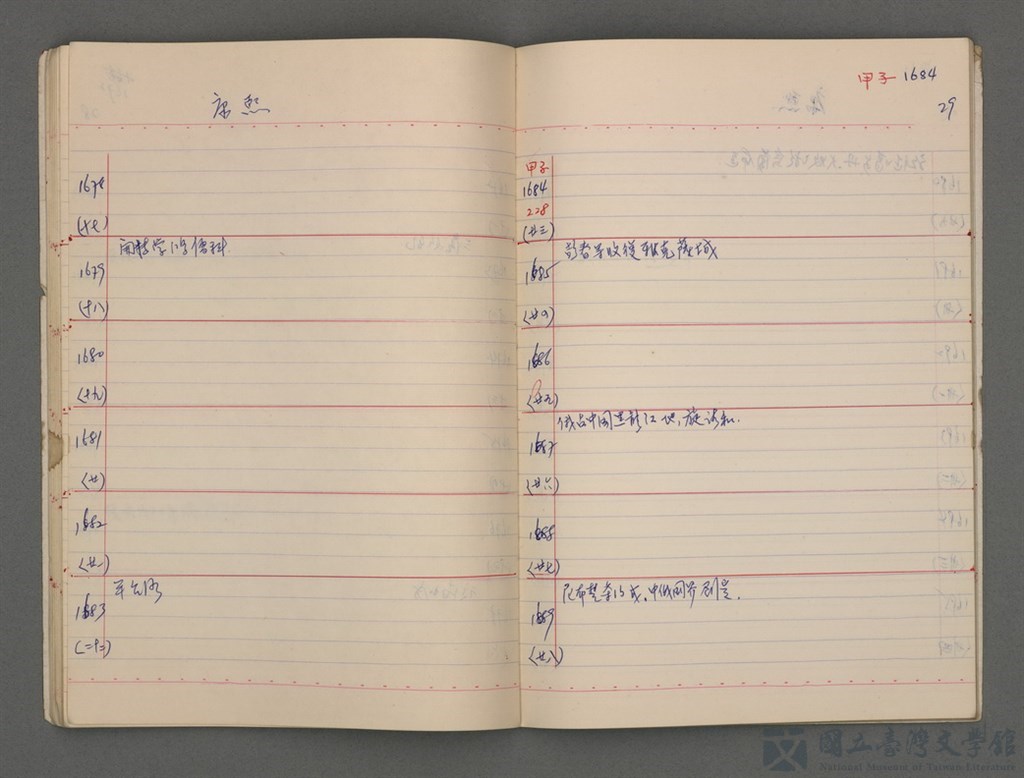 康熙
1678
(十七)
開博學鴻儒科
1679
(十八)
1680
(十九)
1681
(廿)
1682
(廿一)
平台灣
1683
(二十二)
甲子 1684
29
甲子
1684
228
(廿三)
彭春等收復雅克薩城
1685
(廿四)
1686
(廿五)
俄占中国黑龍江地,旋議和.
1687
(廿六)
1688
(廿七)
尼布楚条約成,中俄国界劃定.
1689
(廿八)
國立臺灣文學館
National Museum of Taiwan Literature